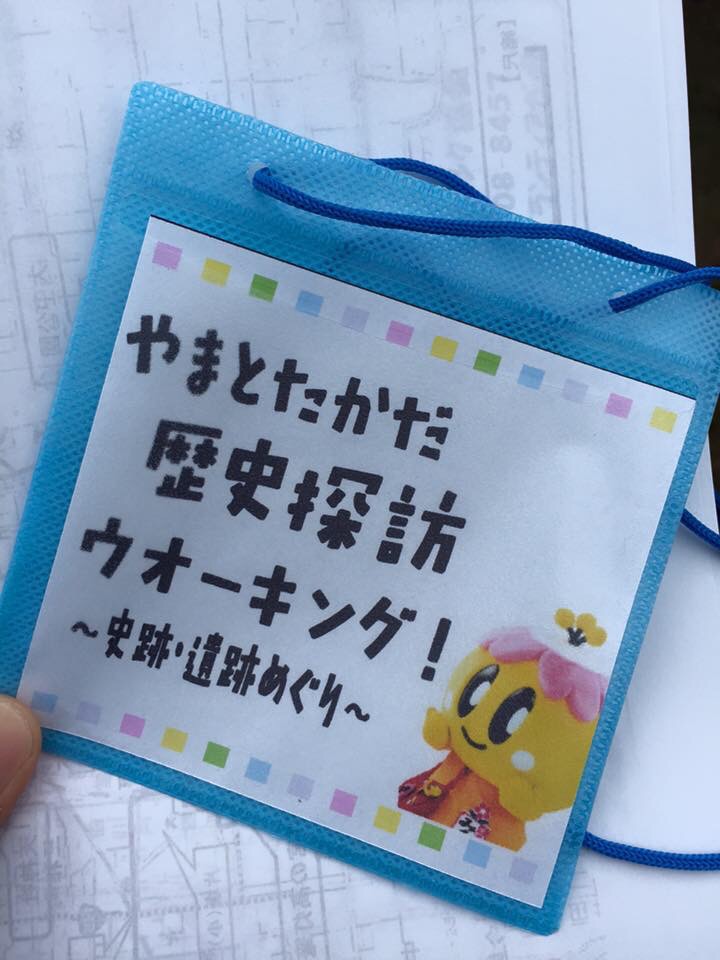 やまとたかだ
歴史探訪
ウオーキング!
~史跡・遺跡めぐり~
08-8457